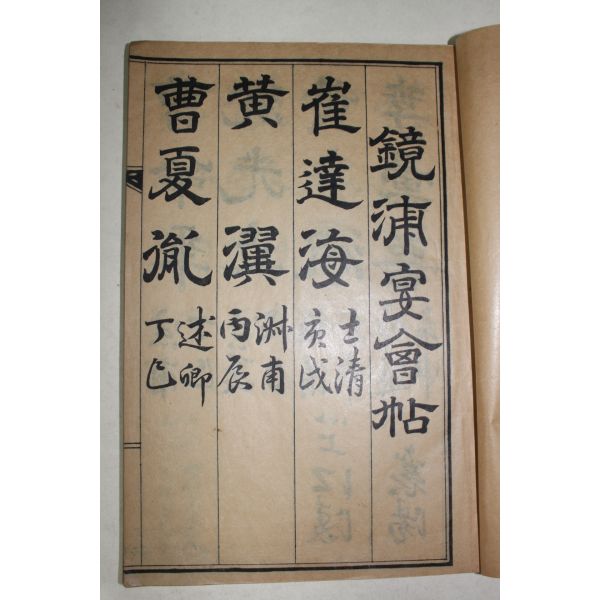 鏡浦宴會帖
崔達海
士清
庚戌
黃瀷
甫
丙辰
曹夏胤
述卿
丁巳